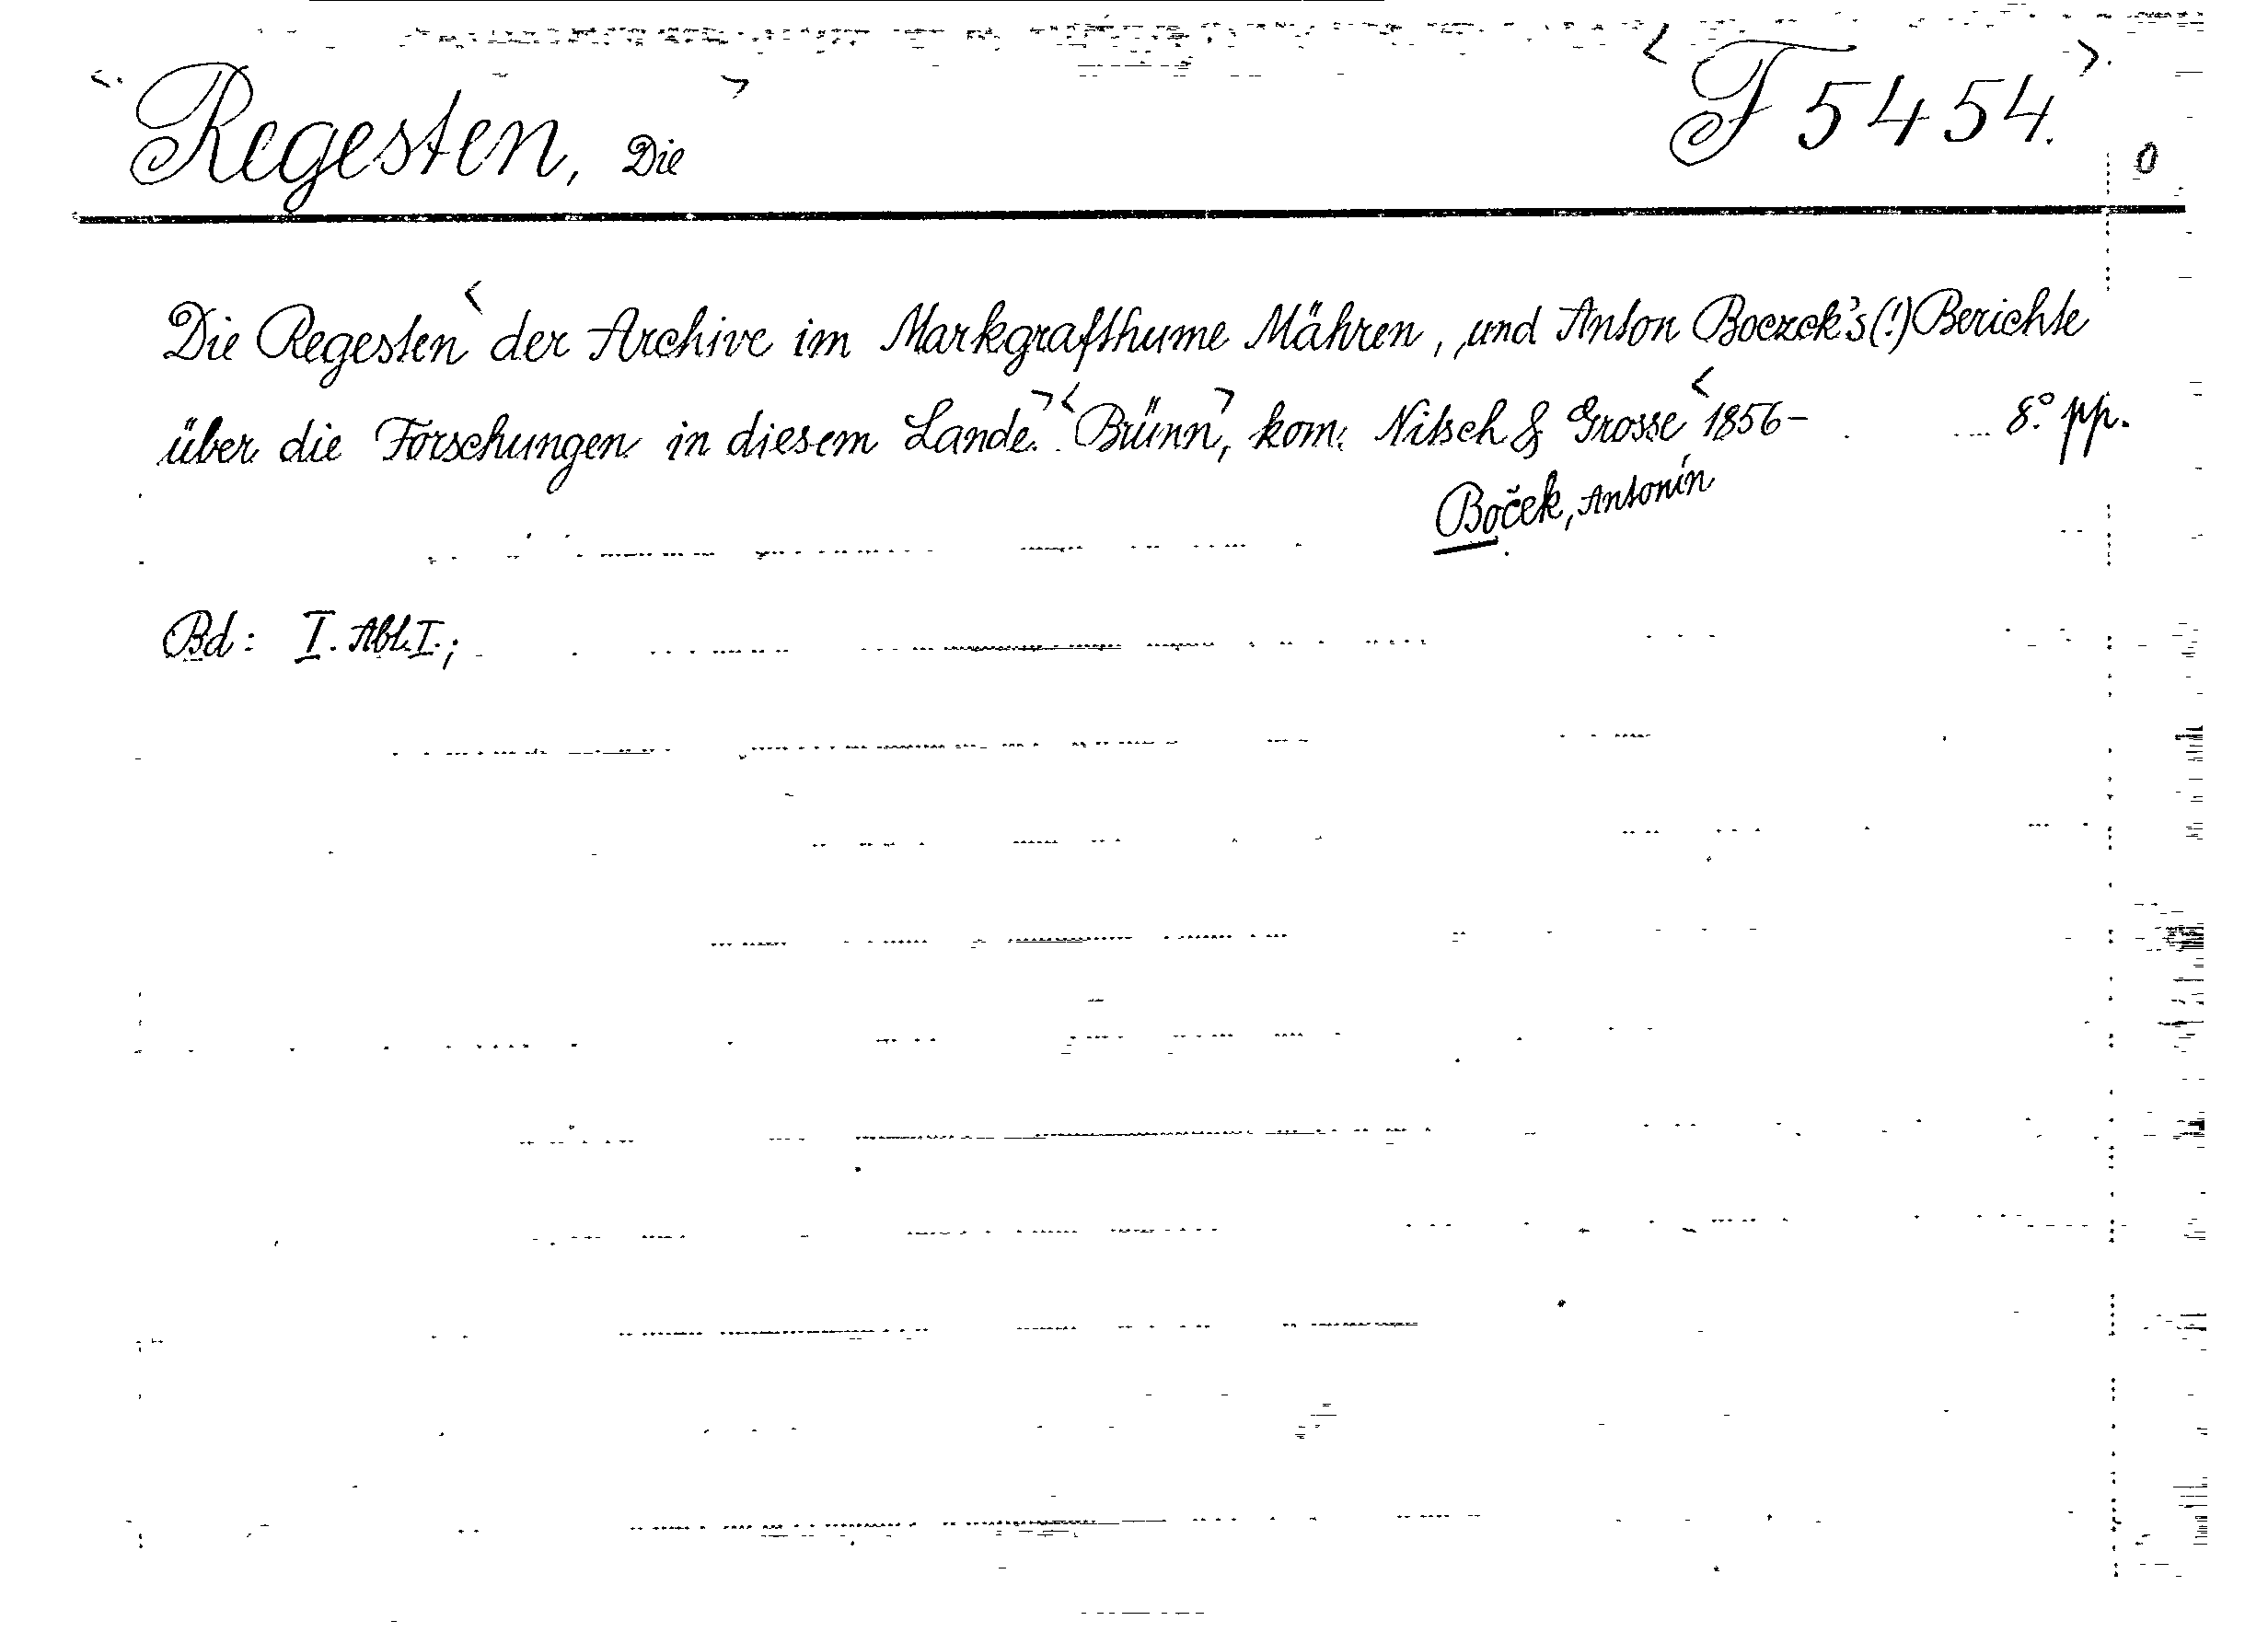 Regesten, Die
F 5454.
0
Die Regesten der Archive im Markgrafthume Mähren, und Anton Boczek's (!) Berichte
über die Forschungen in diesem Lande. Brünn, kom. Nitsch & Grosse 1856- 8.° pp.
Boček, Antonín
Bd: I. Abt. I.;